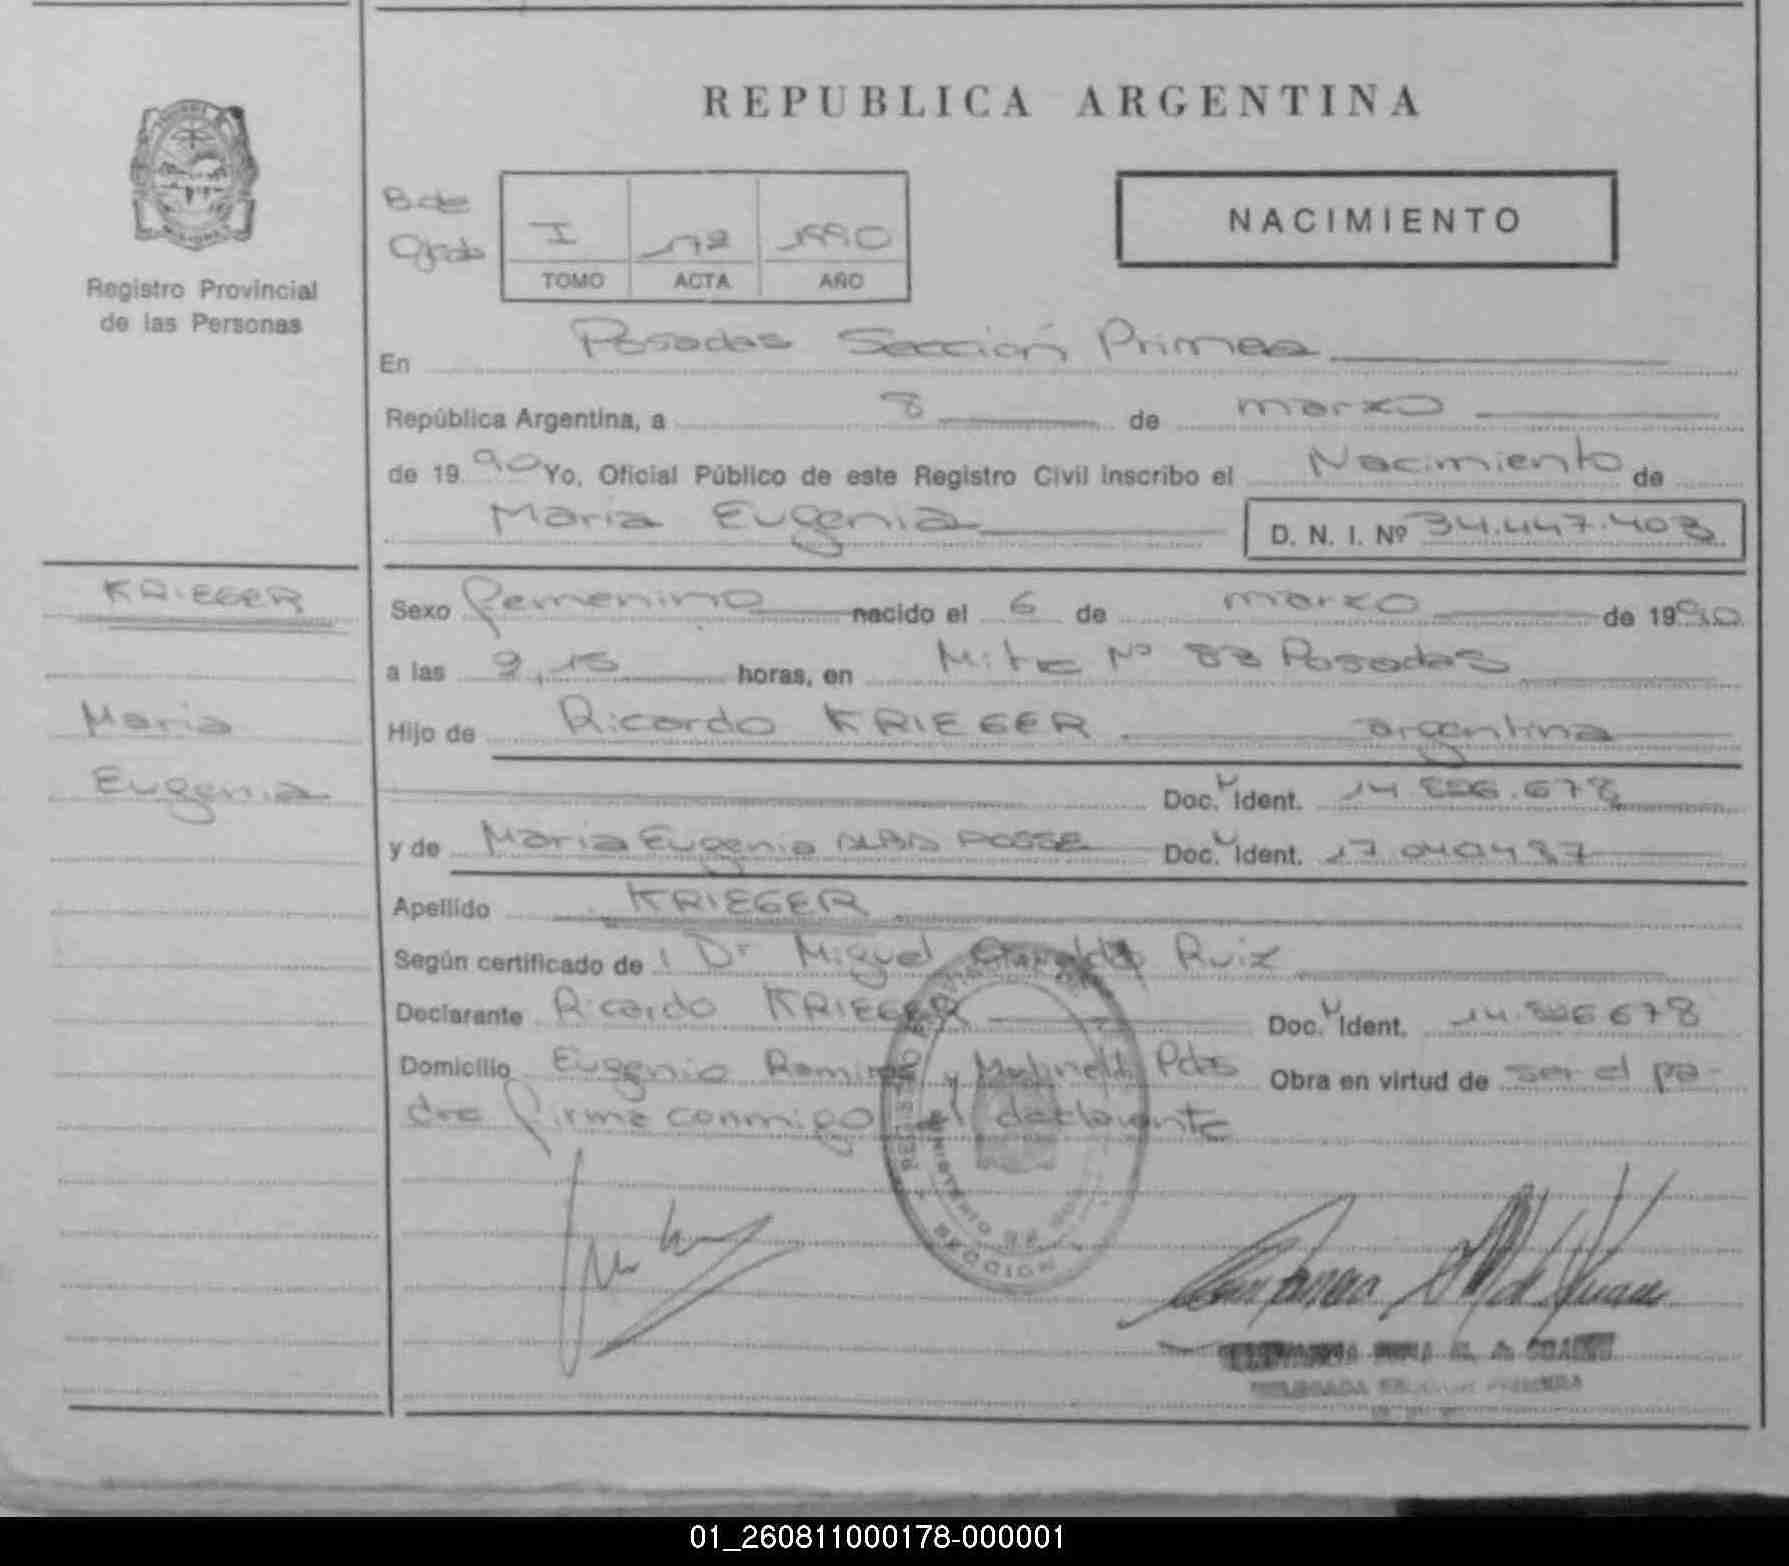 REPUBLICA ARGENTINA
NACIMIENTO
Bde
I 172 1990
TOMO ACTA AÑO
Registro Provincial
de las Personas
En Posadas Sección Primera
República Argentina, a 8 de marzo
de 1990 Yo, Oficial Público de este Registro Civil inscribo el Nacimiento de
Maria Eugenia D. N. I. Nº 34.447.403
KRIEGER
Maria
Eugenia
Sexo femenino nacido el 6 de marzo de 1990
a las 9,15 horas, en Mitre Nº 83 Posadas
Hijo de Ricardo KRIEGER argentina
Doc. Ident. 14.896.678
y de Maria Eugenia POSSE Doc. Ident. 17.040487
Apellido KRIEGER
Según certificado de Dr Miguel Ruiz
Declarante Ricardo KRIEGER Doc. Ident.
Domicilio Eugenio Ramirez y Pdas Obra en virtud de ser el pa-
dre firma conmigo el declarante
SECCION
01_260811000178-000001